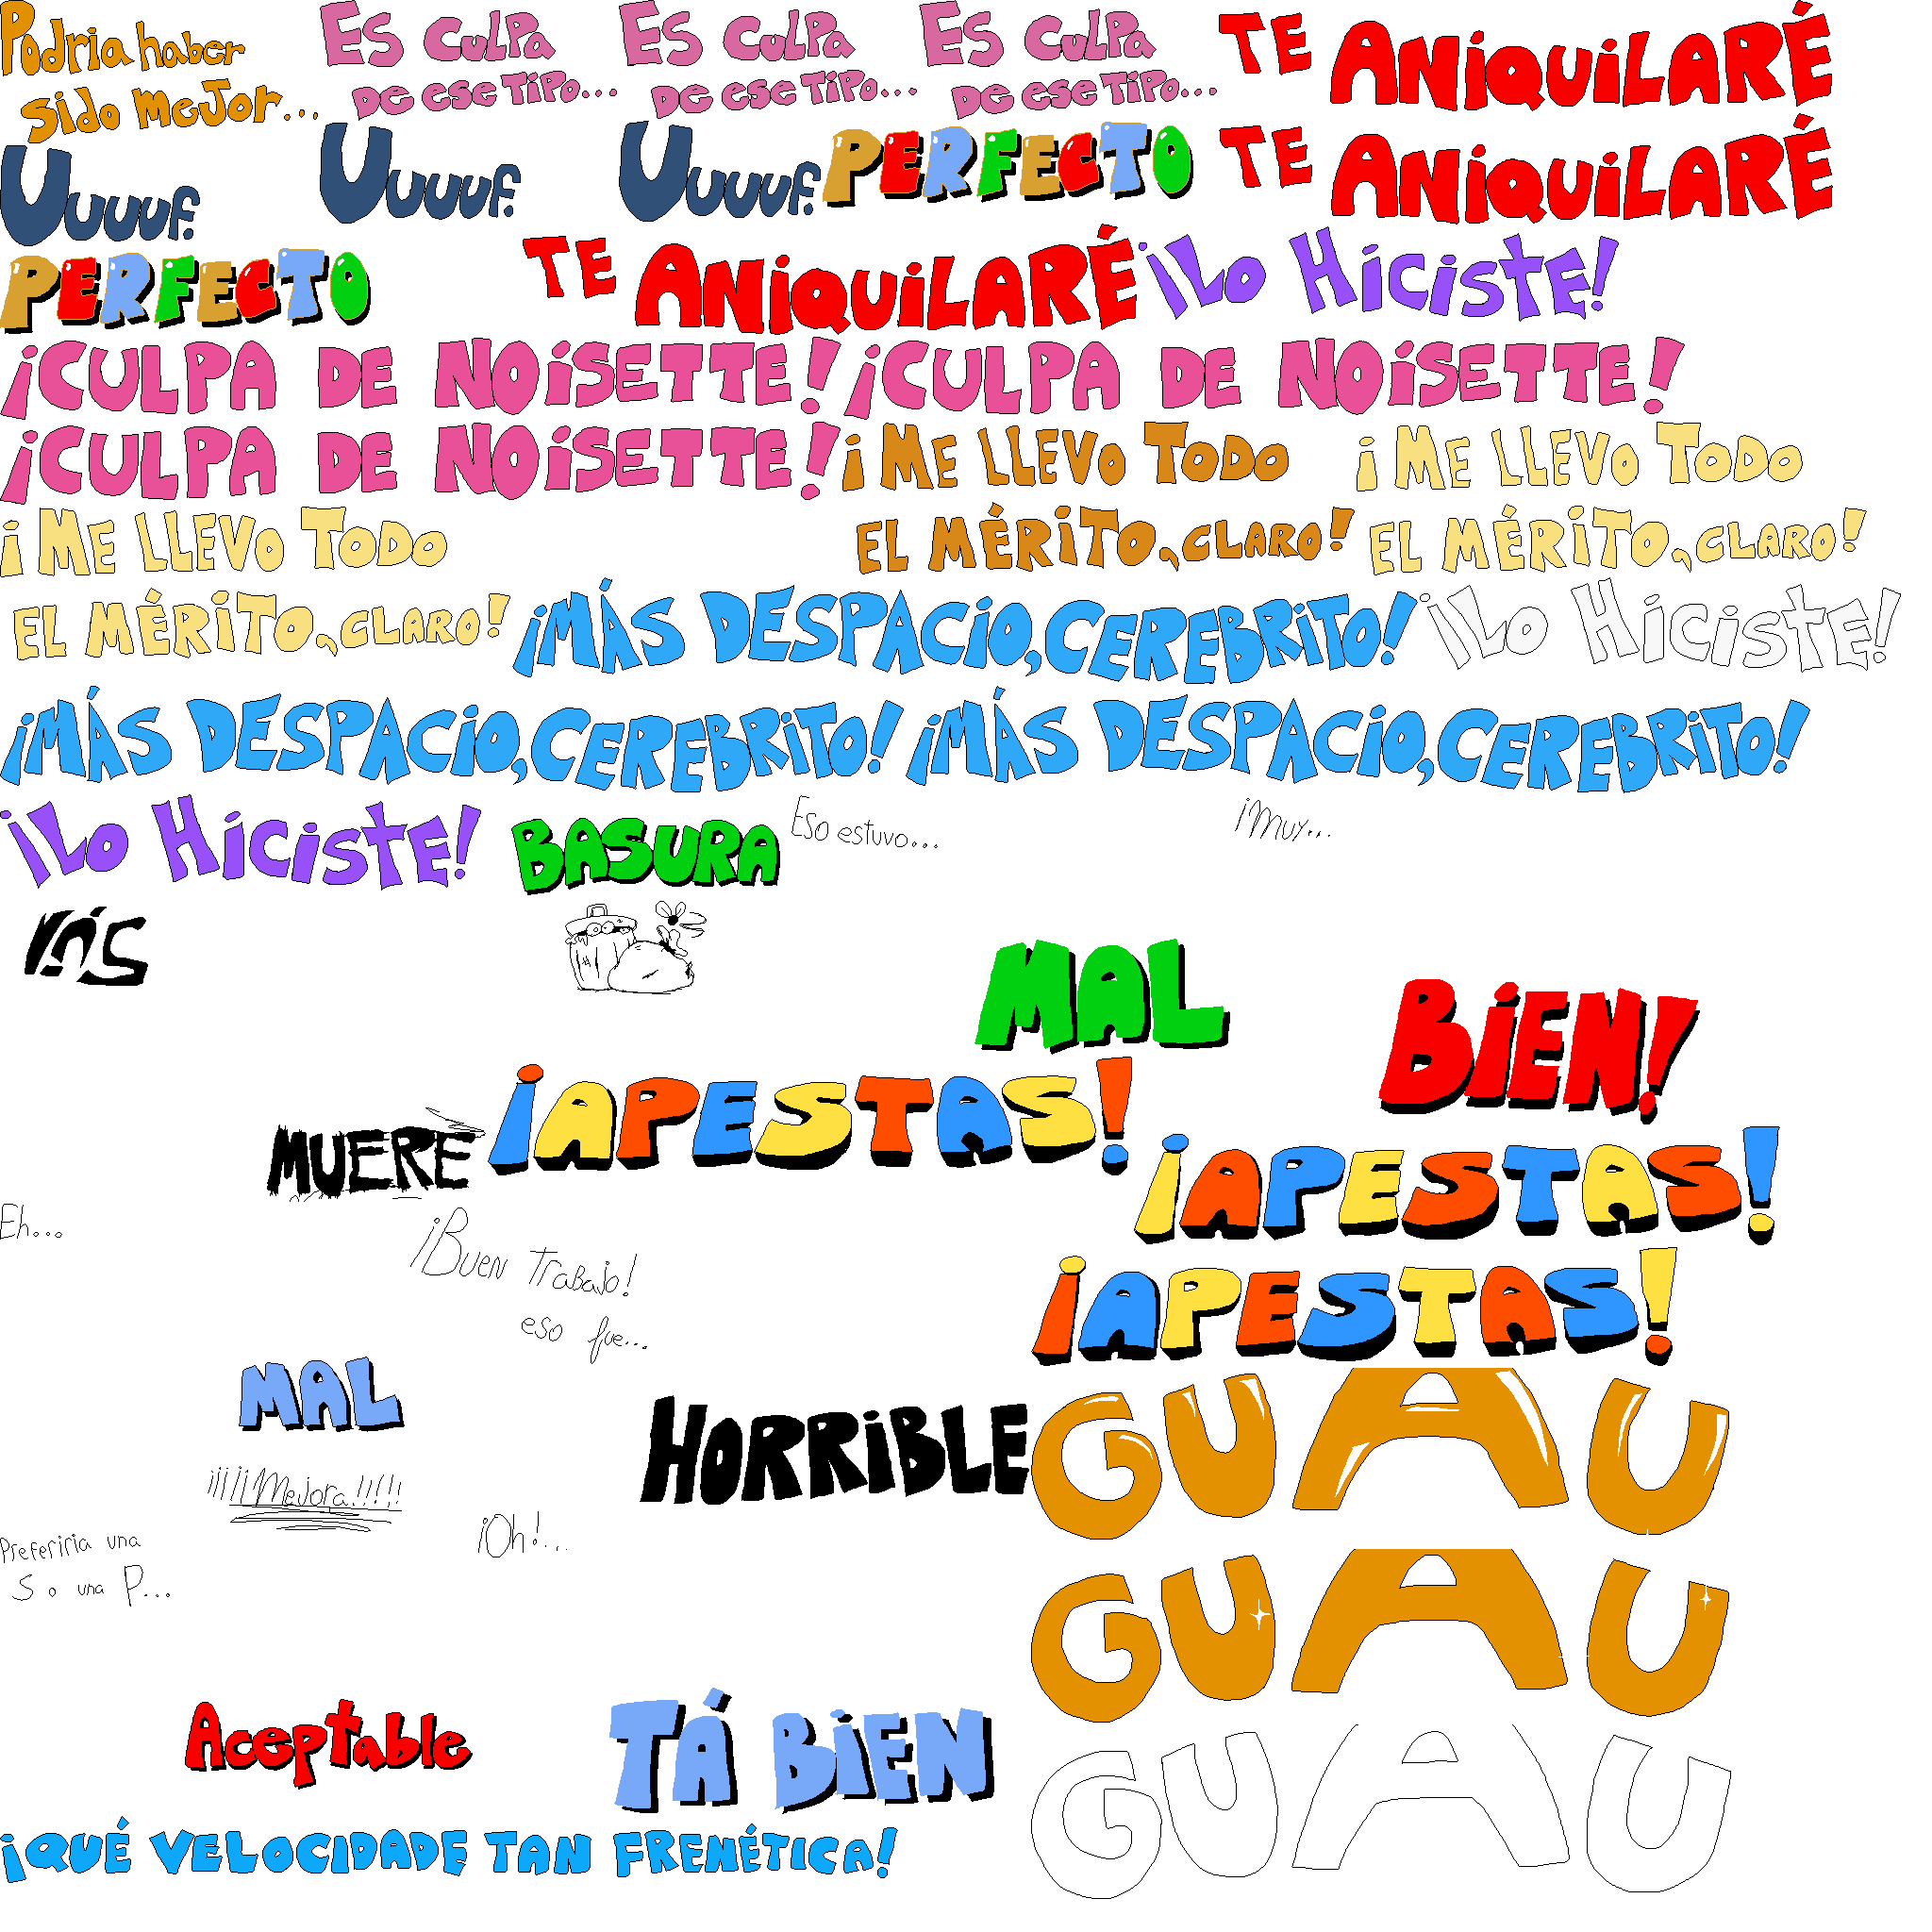 Podria haber
sido mejor...
Es culpa
de ese tipo...
Es culpa
de ese tipo...
Es culpa
de ese tipo...
TE ANiQUiLARÉ
Uuuuf.
Uuuuf.
Uuuuf.
PERFECTO
TE ANiQUiLARÉ
PERFECTO
TE ANiQUiLARÉ
¡Lo Hiciste!
¡CULPA DE NOiSETTE!
¡CULPA DE NOiSETTE!
¡CULPA DE NOiSETTE!
¡ME LLEVO TODO
EL MÉRiTO, CLARO!
¡ME LLEVO TODO
EL MÉRiTO, CLARO!
¡ME LLEVO TODO
EL MÉRiTO, CLARO!
¡MÁS DESPACiO, CEREBRiTO!
¡Lo Hiciste!
¡MÁS DESPACiO, CEREBRiTO!
¡MÁS DESPACiO, CEREBRiTO!
¡Lo Hiciste!
BASURA
Eso estuvo...
¡Muy...
MAL
BiEN!
MUERE
¡APESTAS!
¡APESTAS!
Eh...
¡Buen Trabajo!
eso fue...
¡APESTAS!
MAL
HORRiBLE
GUAU
¡¡¡¡¡Mejora!!!!!
¡Oh!...
Preferiria una
S o una P...
GUAU
Aceptable
TÁ BiEN
GUAU
¡QUÉ VELOCIDADE TAN FRENÉTICA!